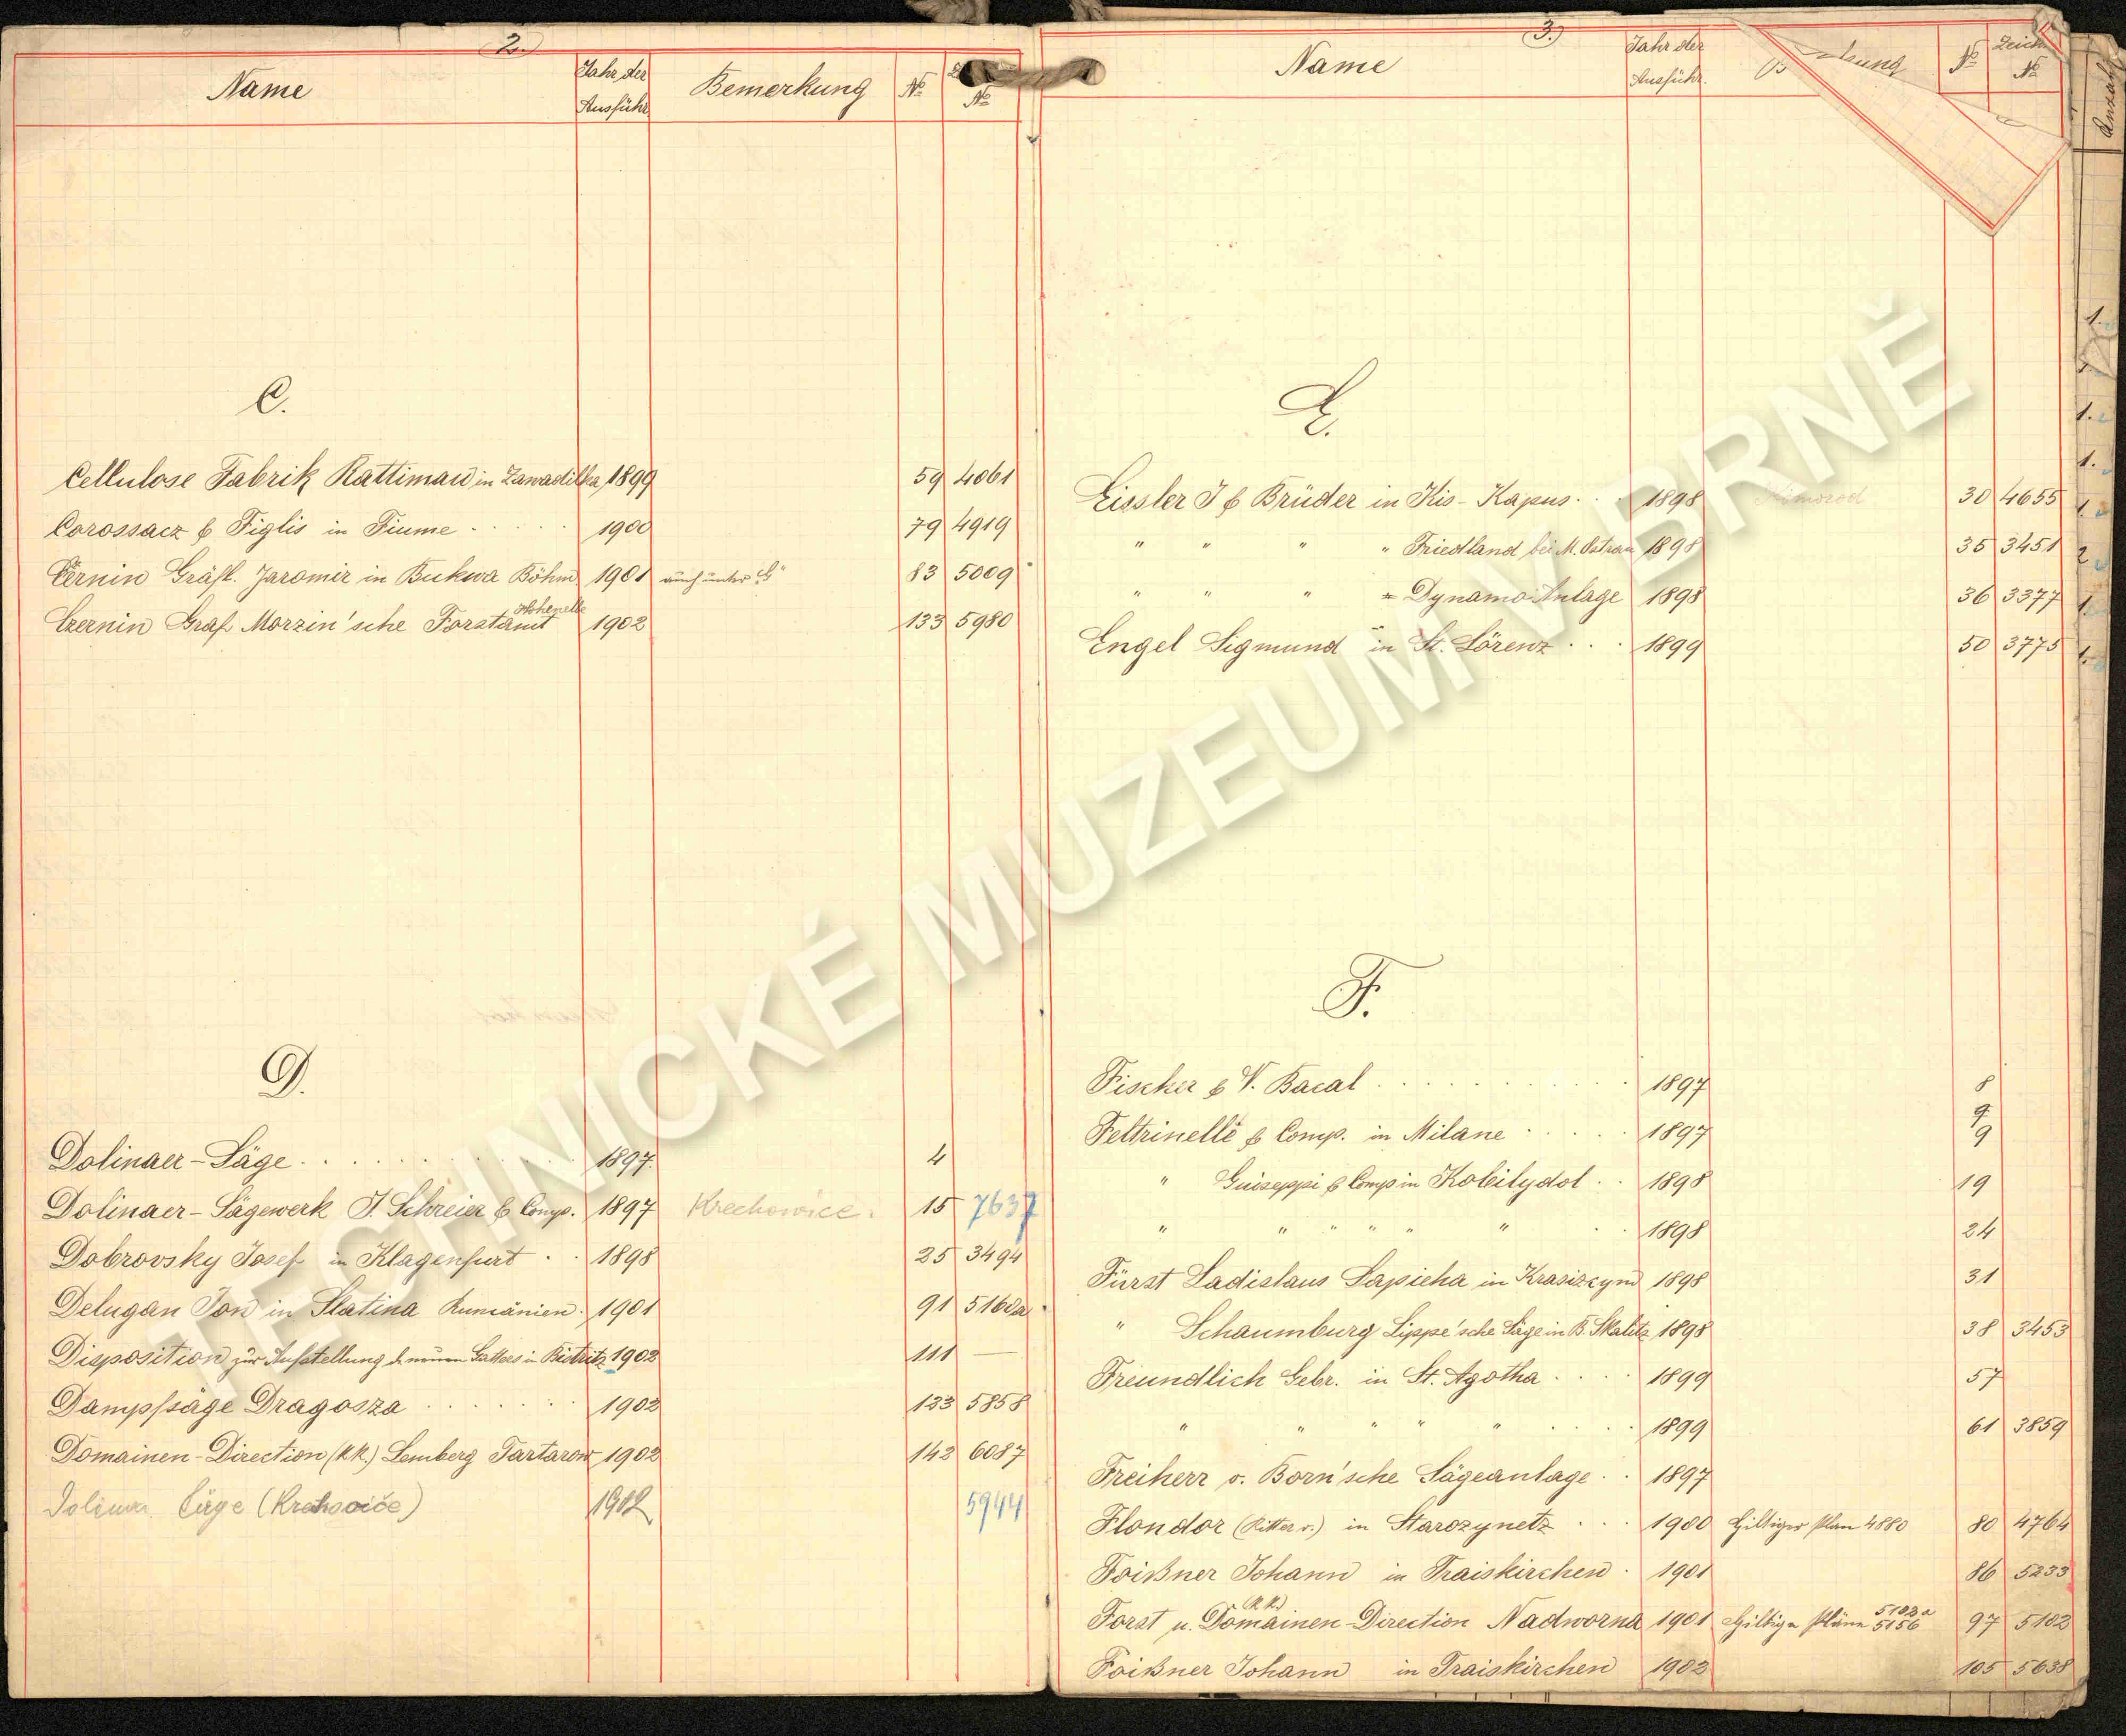 2.
Name Jahr der Ausführ. Bemerkung No No
C.
Cellulose Fabrik Rattimau in Zawadilka 1899 59 4061
Corossacz & Figlis in Fiume 1900 79 4919
Černin Gräfl. Jaromir in Bukwa Böhm. 1901 auch unter "G" 83 5009
Hohenelbe
Czernin Graf Morzin'sche Forstamt 1902 133 5980
D.
Dolinaer-Säge 1897. 4
Dolinaer-Sägewerk J. Schreier & Comp. 1897 Krechowice. 15 7637
Dobrovsky Josef in Klagenfurt 1898 25 3494
Delugan Ion in Slatina Rumänien. 1901 91 5160a
Disposition zür Aufstellung d. neuen Gatters in Bistritz 1902 111 —
Dampfsäge Dragosza 1902 123 5858
Domainen-Direction (k.k.) Lemberg Tartarow 1902 142 6087
Dolinaer Säge (Krechowiče) 1902 5944
3.
Name Jahr der Ausführ. No Zeich. No
Anzahl
E.
Eissler J & Brüder in Kis-Kapus 1898 30 4655
" " " " Friedland bei M. Ostrau 1898 35 3451
" " " = Dynamo-Anlage 1898 36 3377
Engel Sigmund in St. Lörenz 1899 50 3775
F.
Fischer & V. Bacal 1897 8
Feltrinelli & Comp. in Milane 1897 9
" Guiseppi & Comp in Kobilydol 1898 19
" " " " " " 1898 24
Fürst Ladislaus Sapieha in Krasiczyn 1898 31
" Schaumburg Lippe'sche Säge in B. Skalitz 1898 38 3453
Freundlich Gebr. in St. Agotha 1899 57
" " " " " 1899 61 3859
Freiherr v. Born'sche Sägeanlage 1897
Flondor (Ritter v.) in Starozynetz 1900 Giltiger Plan 4880 80 4764
Foißner Johann in Traiskirchen 1901 86 5233
(k.k.)
Forst u. Domainen-Direction Nadworna 1901 Giltige Pläne 5102a 5156 97 5102
Foißner Johann in Traiskirchen 1902 105 5638
TECHNICKÉ MUZEUM V BRNĚ